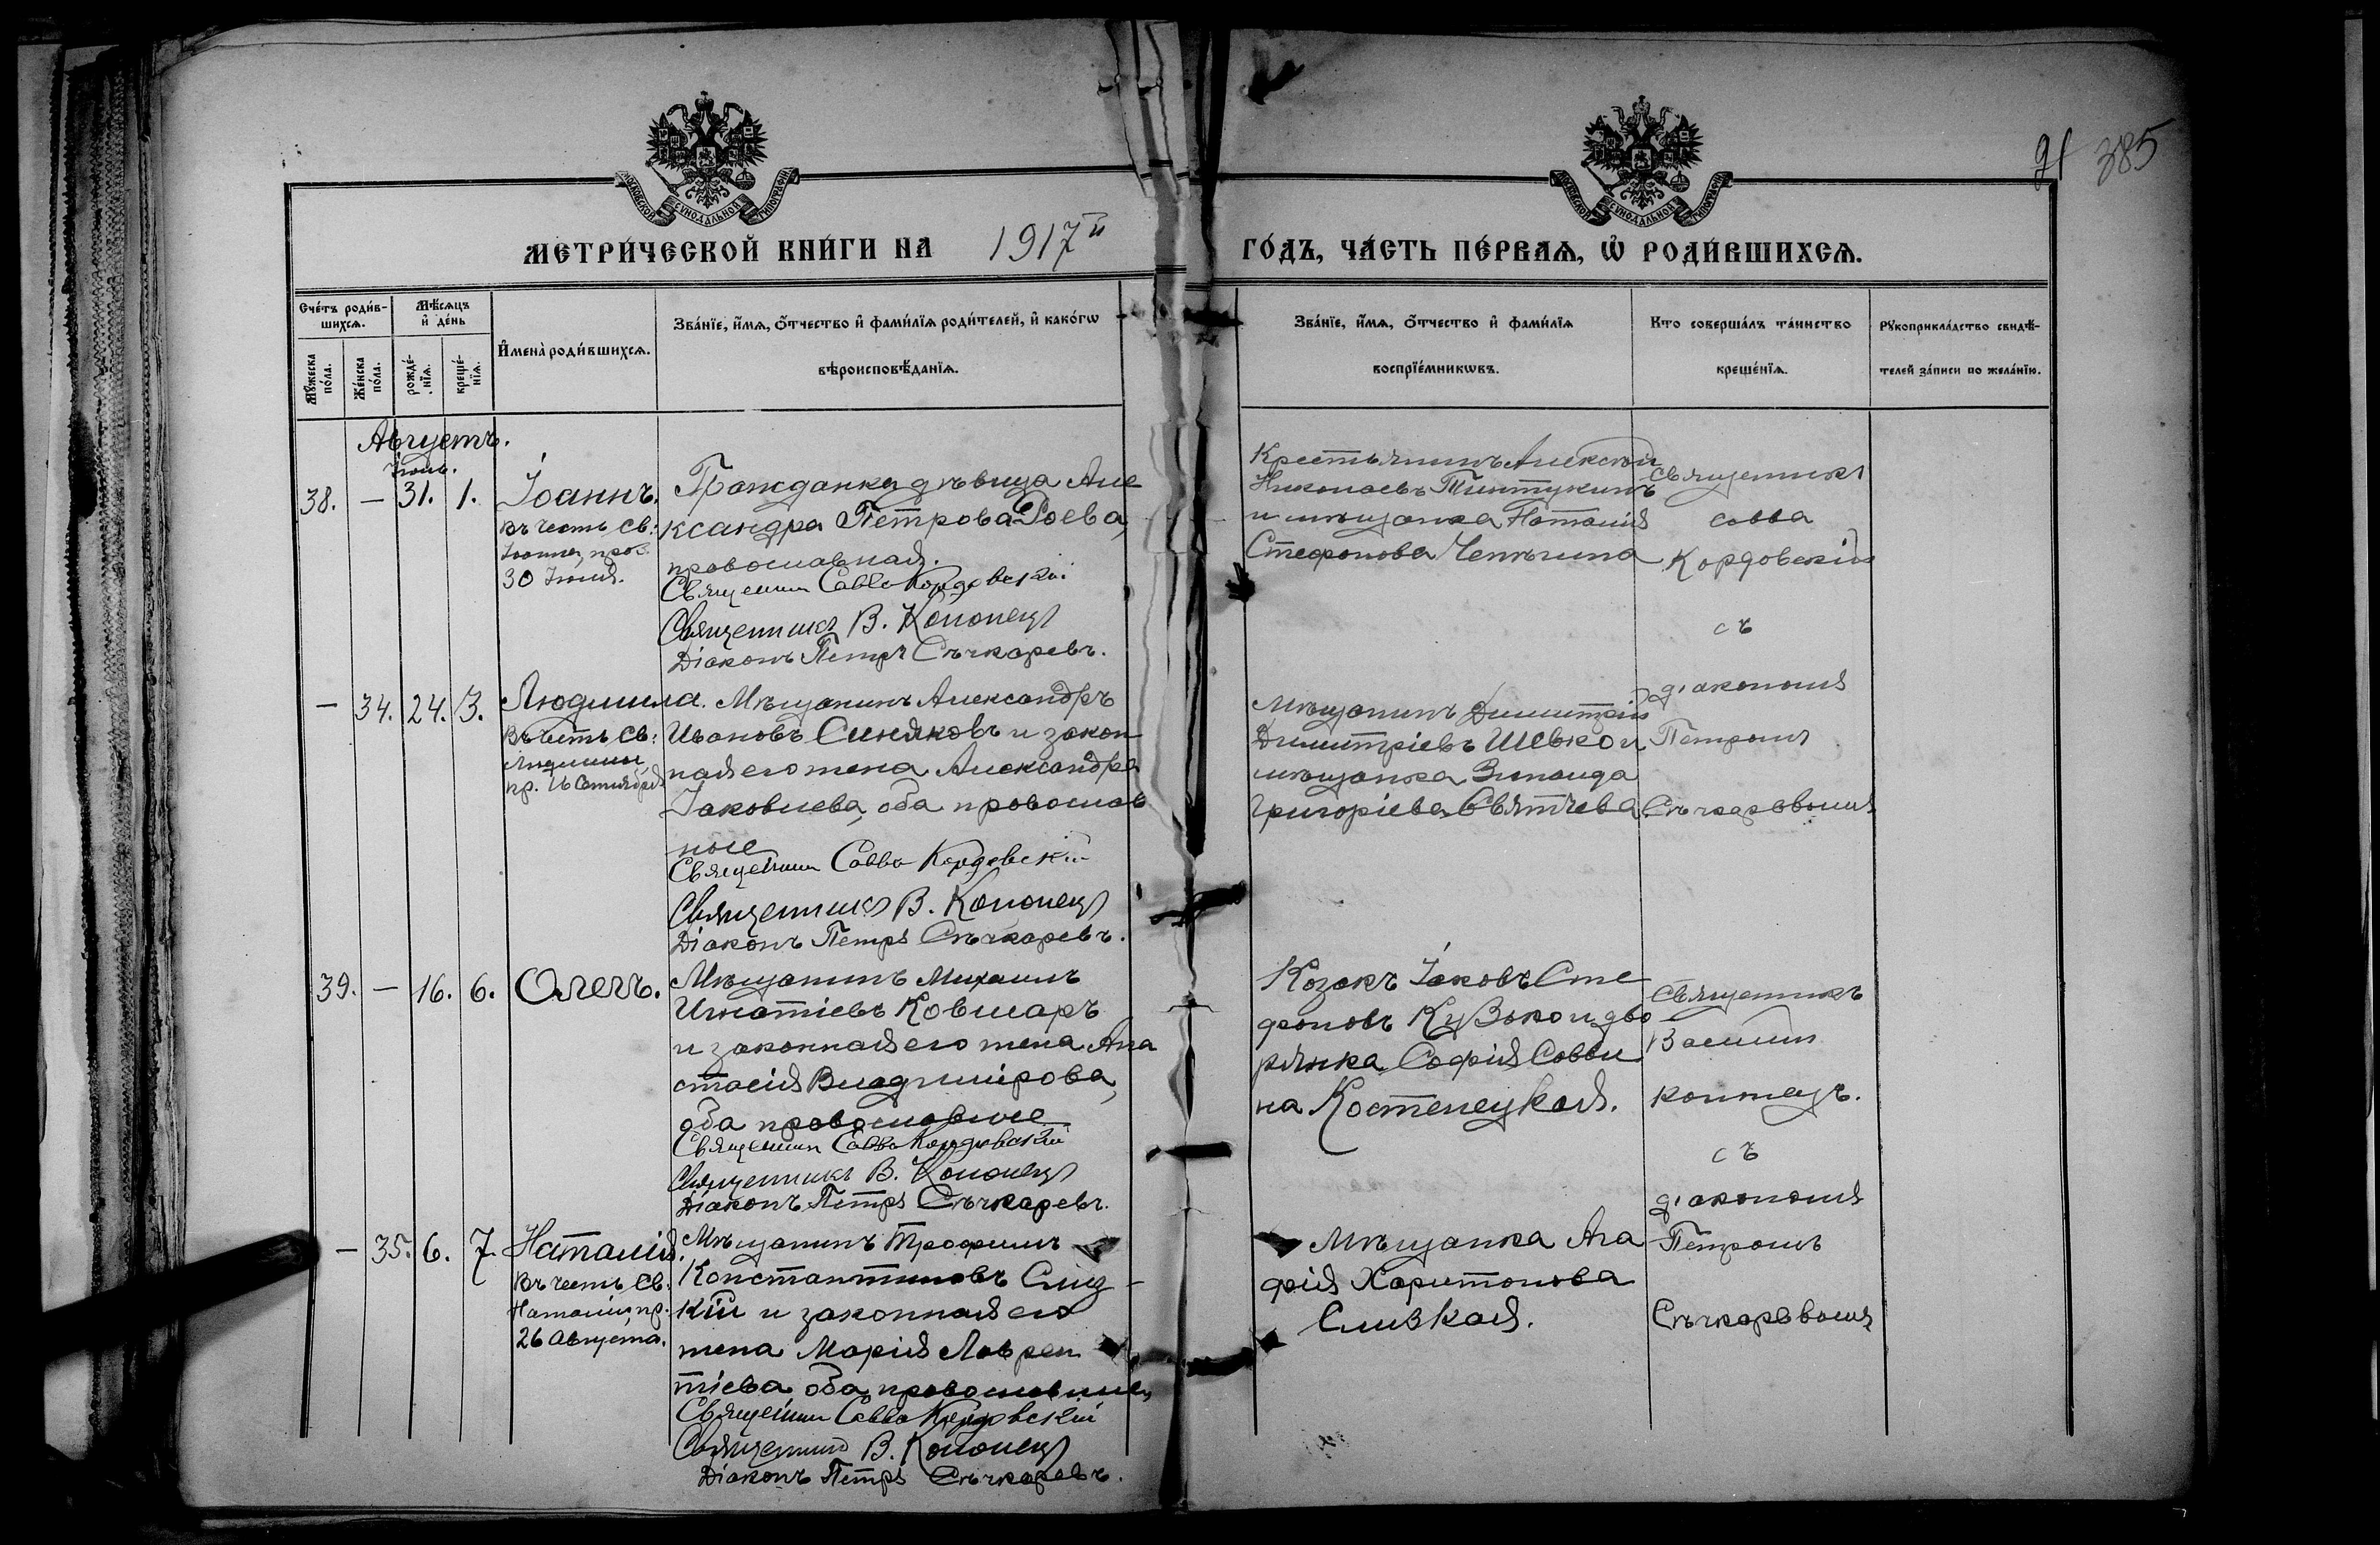 91 385
МОСКОВСКОЙ СѴНОДАЛЬНОЙ ТИПОГРАФІИ
МОСКОВСКОЙ СѴНОДАЛЬНОЙ ТИПОГРАФІИ
МЕТРИ́ЧЕСКОЙ КНИ́ГИ НА 1917й ГО́ДЪ, ЧА́СТЬ ПЕ́РВАѦ, Ѡ҆ РОДИ́ВШИХСѦ.
Сче́тъ роди́в-
шихсѧ.
Мѹ́жеска
по́ла.
Же́нска
по́ла.
Мѣ́сѧцъ
и҆ де́нь
рожде́-
нїѧ.
креще́-
нїѧ.
И҆мена̀ роди́вшихсѧ.
Зва́нїе, и҆́мѧ, ѻ҆́тчество и҆ фами́лїѧ роди́телей, и҆ како́гѡ
вѣроисповѣ́данїѧ.
Зва́нїе, и҆́мѧ, ѻ҆́тчество и҆ фами́лїѧ
воспрїе́мникѡвъ.
Кто соверша́лъ та́инство
креще́нїѧ.
Рꙋкоприкла́дство свидѣ́-
телей за́писи по жела́нїю.
Августъ.
Іюль.
38. — 31. 1. Іоаннъ.
въ честь св.
Іоанна, праз.
30 Іюля.
Гражданка дѣвица Але
ксандра Петрова Роева,
православная.
Священник Савва Кордовскій
Священникъ В. Кононец
Діаконъ Петръ Сѣчкаревъ.
Крестьянинъ Алексѣй
Николаевъ Тинтукинъ
и мѣщанка Наталія
Стефанова Чепыгина
Священникъ
Савва
Кордовскій
съ
діакономъ
Петромъ
Сѣчкаревымъ
— 34. 24. 3. Людмила.
Въ честь Св.
Людмилы,
пр. 16 Сентября
Мѣщанинъ Александръ
Ивановъ Синяковъ и закон
ная его жена Александра
Іаковлева, оба православ
ные
Священник Савва Кордовскій
Священникъ В. Кононец
Діаконъ Петръ Сѣчкаревъ.
Мѣщанинъ Димитрій
Димитріевъ Шевко и
мѣщанка Зинаида
Григоріева Святчева
39. — 16. 6. Олегъ.
Мѣщанинъ Михаилъ
Игнатіевъ Ковшаръ
и законная его жена Ана
стасія Владимірова,
оба православные
Священник Савва Кордовскій
Священникъ В. Кононец
Діаконъ Петръ Сѣчкаревъ.
Козакъ Іаковъ Сте
фановъ Кузько и дво
рянка Софія Савви
на Костенецкая.
Священникъ
Василій
съ
діакономъ
Петромъ
Сѣчкаревымъ
— 35. 6. 7. Наталія.
Въ честь Св.
Наталіи, пр.
26 Августа.
Мѣщанинъ Трофимъ
Константиновъ Слиз-
кій и законная его
жена Марія Лаврен
тіева оба православные
Священник Савва Кордовскій
Священник В. Кононец
Діаконъ Петръ Сѣчкаревъ.
Мѣщанка Ага
фія Харитонова
Слизкая.